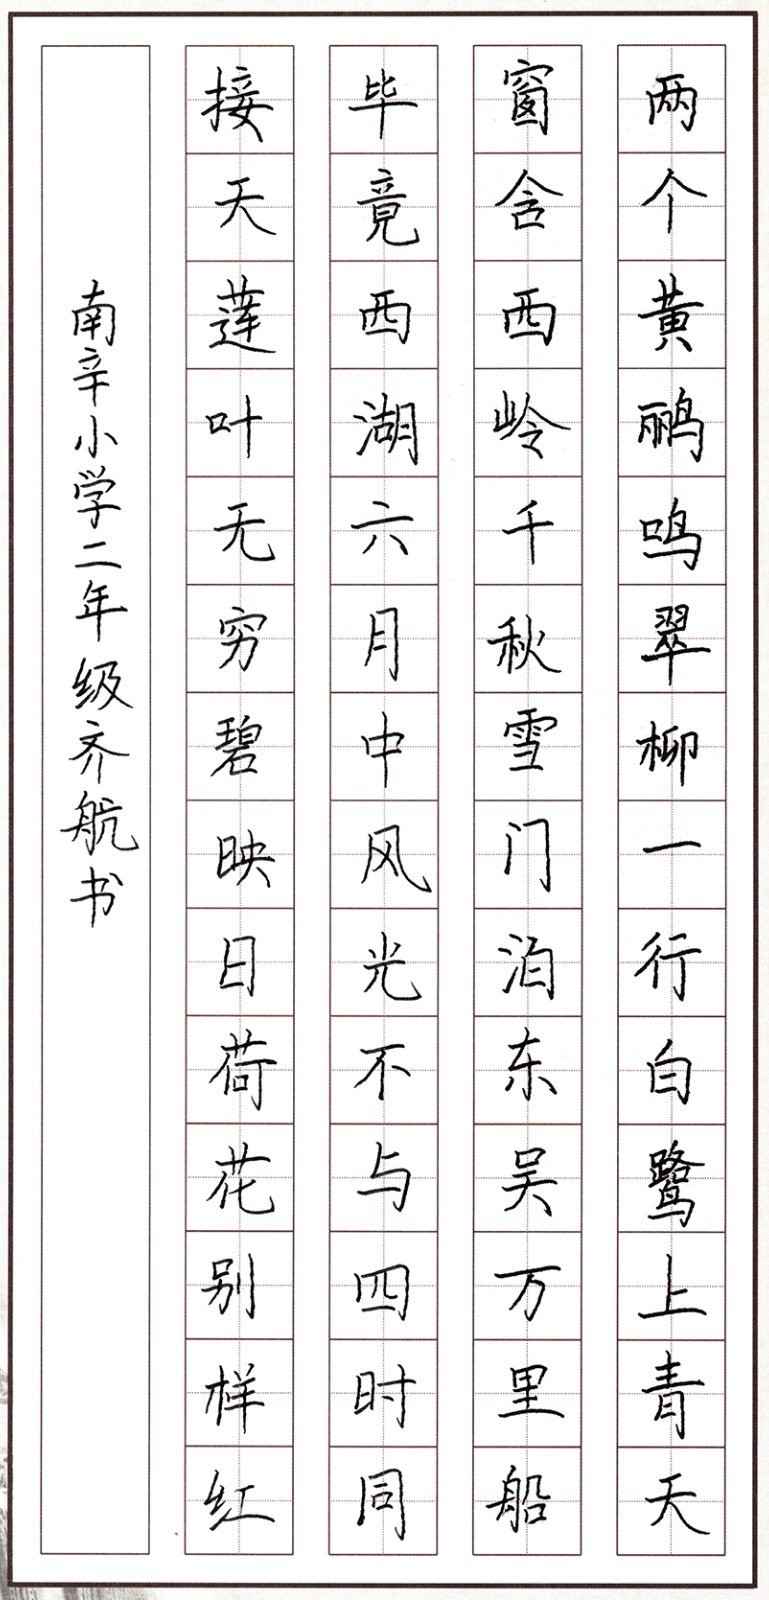 两个黄鹂鸣翠柳一行白鹭上青天
窗含西岭千秋雪门泊东吴万里船
毕竟西湖六月中风光不与四时同
接天莲叶无穷碧映日荷花别样红
南辛小学二年级齐航书